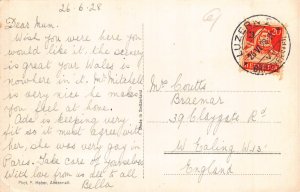 26-6-28
Dear Mum.
Wish you were here you
would like it. the scenery
is great your Wales is
nowhere in it. Mr Mitchell
is very nice he makes
you feel at home.
Ada is keeping very
fit so it must agree with
her, she was very gay in
Paris. Take care of yourselves
With love from us dee to all
Bella
Phot. F. Haber, Andermatt.
LUZERN
HELVETIA
20
Mrs Coutts
Braemar
39 Claygate Rd
W Ealing W13
England